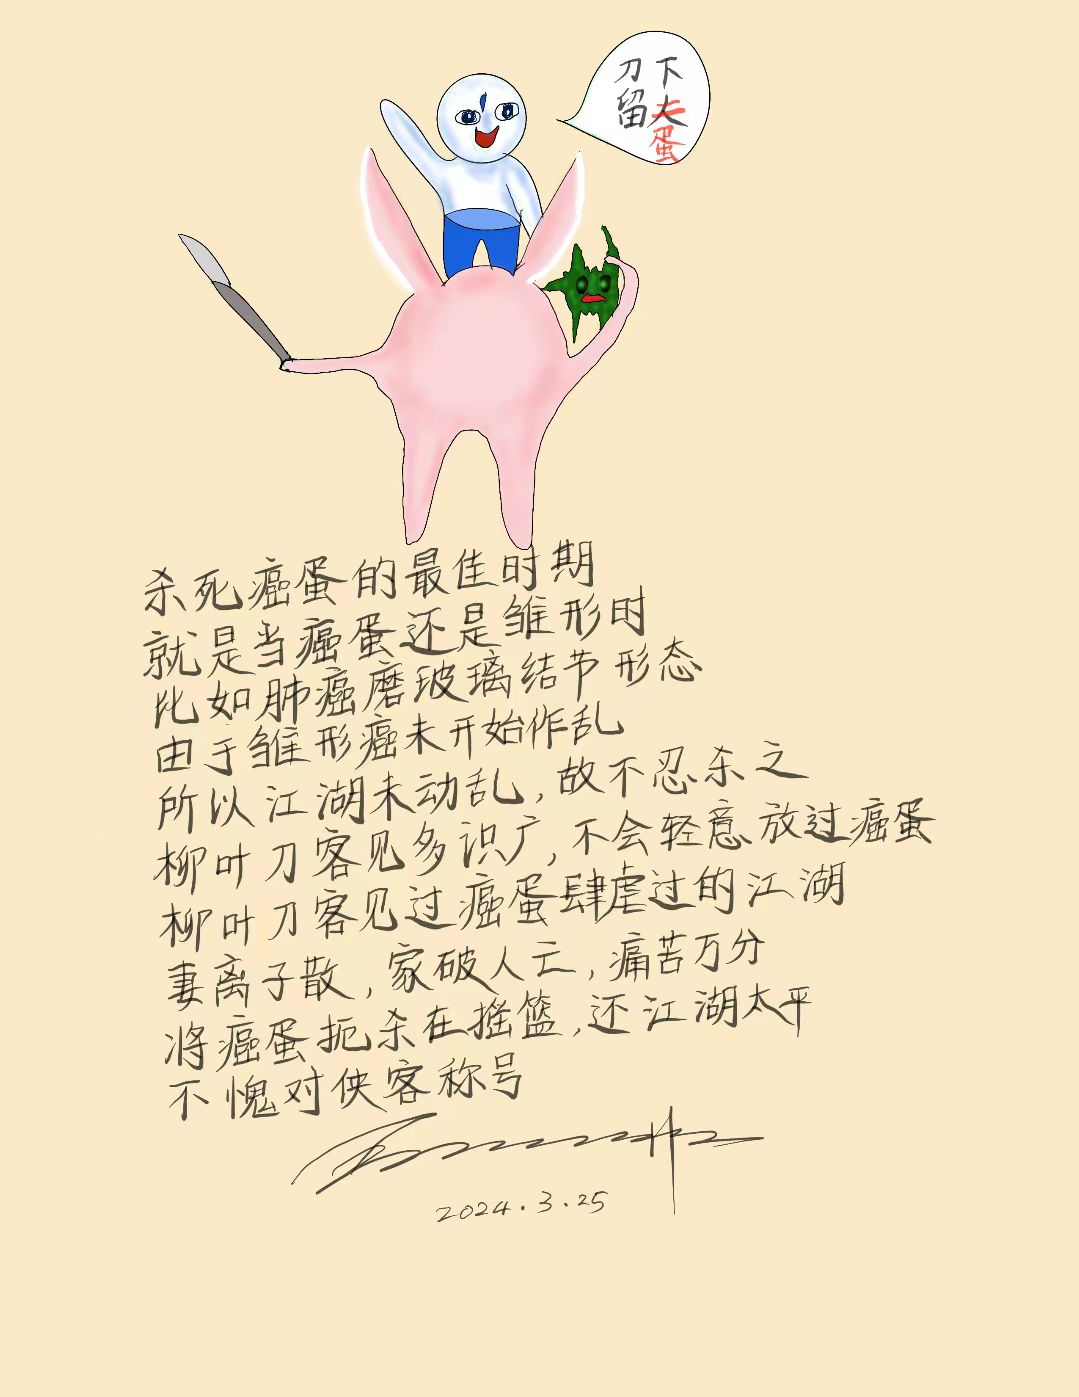 刀下
留人蛋
杀死癌蛋的最佳时期
就是当癌蛋还是雏形时
比如肺癌磨玻璃结节形态
由于雏形癌未开始作乱
所以江湖未动乱，故不忍杀之
柳叶刀客见多识广，不会轻意放过癌蛋
柳叶刀客见过癌蛋肆虐过的江湖
妻离子散，家破人亡，痛苦万分
将癌蛋扼杀在摇篮，还江湖太平
不愧对侠客称号
2024.3.25